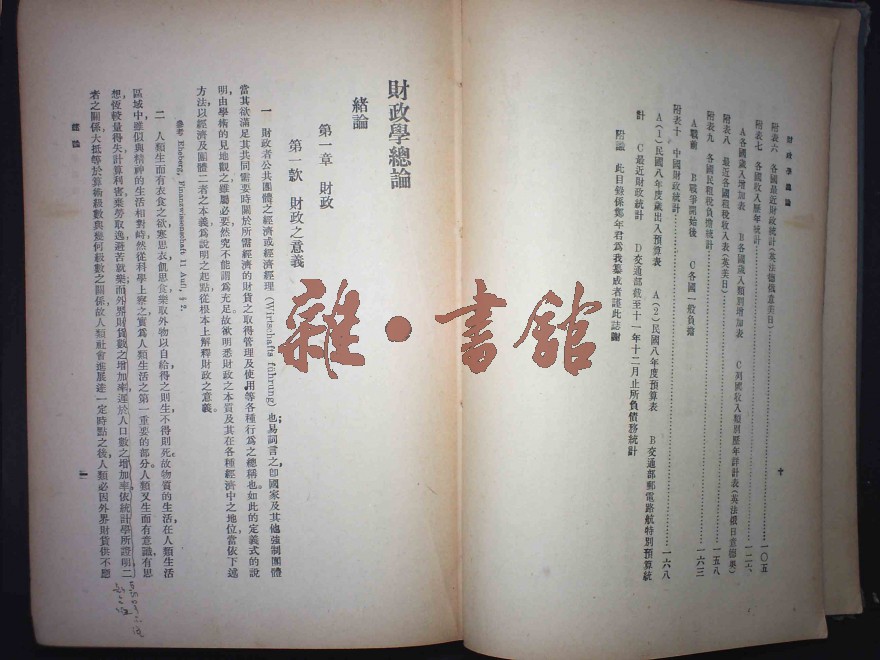 財政學總論
附表六 各國最近財政統計(英法德俄意美日)
附表七 各國收入歷年統計……一〇五
A各國歲入增加表 B各國歲入類別增加表 C列國收入類別歷年詳計表(英法俄日意德奧)
附表八 各國租稅收入表(英美日)……一五八
附表九 各國民租稅負擔統計……一六三
A戰前 B戰爭開始後 C各國一般負擔
附表十 中國財政統計……一六八
A(1)民國八年度歲出入預算表 A(2)民國八年度預算表 B交通部郵電路航特別預算統
計 C最近財政統計 D交通部截至十一年十二月止所負債務統計
附識 此目錄係鄭年君爲我纂成者謹此誌謝
十
財政學總論
緒論
第一章 財政
第一款 財政之意義
一 財政者公共團體之經濟或經濟經理(Wirtschafts führung)也;易詞言之,卽國家及其他強制團體
當其欲滿足其共同需要時關於所需經濟的財貨之取得管理及使用等各種行爲之總稱也。如此的定義式的說
明,由學術的見地觀之,雖屬必要,然究不能謂爲充足。故欲明悉財政之本質及其在各種經濟中之地位,當依下述
方法以經濟及團體二者之本義爲說明之起點,從根本上解釋財政之意義。
參考 Eheberg, Finanzwissenschaft 11 Aufl, § 2.
二 人類生而有衣食之欲,寒思衣,飢思食,樂取外物以自給,得之則生,不得則死。故物質的生活在人類生活
區域中,雖似與精神的生活相對峙,然從科學上察之,實爲人類生活之第一重要的部分。人類又生而有意識有思
想,恆較量得失,計算利害,棄勞取逸,避苦就樂,而外界財貨數之增加率遲於人口數之增加率,依統計學所證明,二
者之關係,大抵等於算術級數與幾何級數之關係,故人類社會進展達一定時點之後,人類必因外界財貨供不應
緒論
一
雜·書館